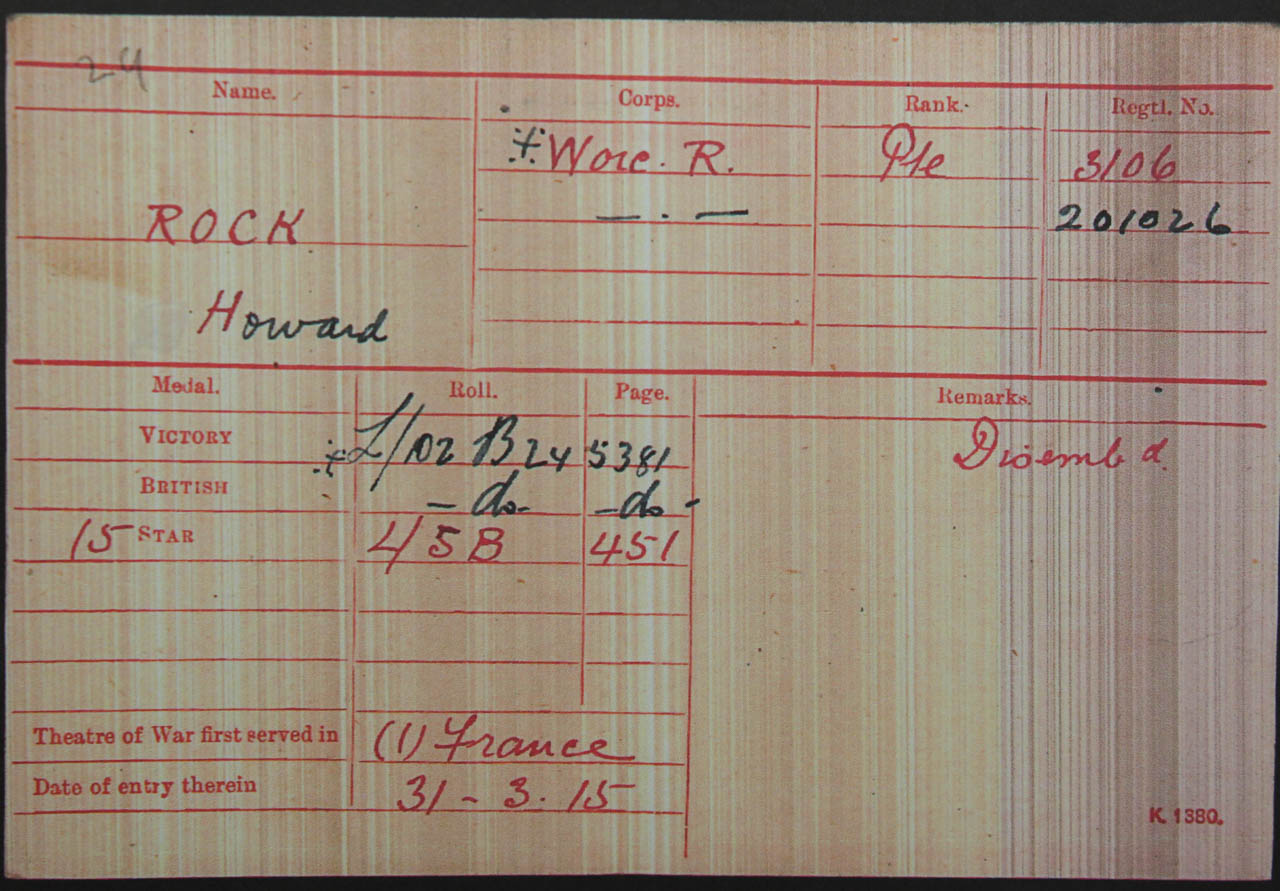 24
Name. Corps. Rank. Regtl. No.
Worc. R. Pte 3106
ROCK — . — 201026
Howard
Medal. Roll. Page. Remarks.
VICTORY L/102 B24 5381 Disemb d.
BRITISH - do - - do -
15 STAR 4/5B 451
Theatre of War first served in (1) France
Date of entry therein 31 - 3. 15
K. 1380.